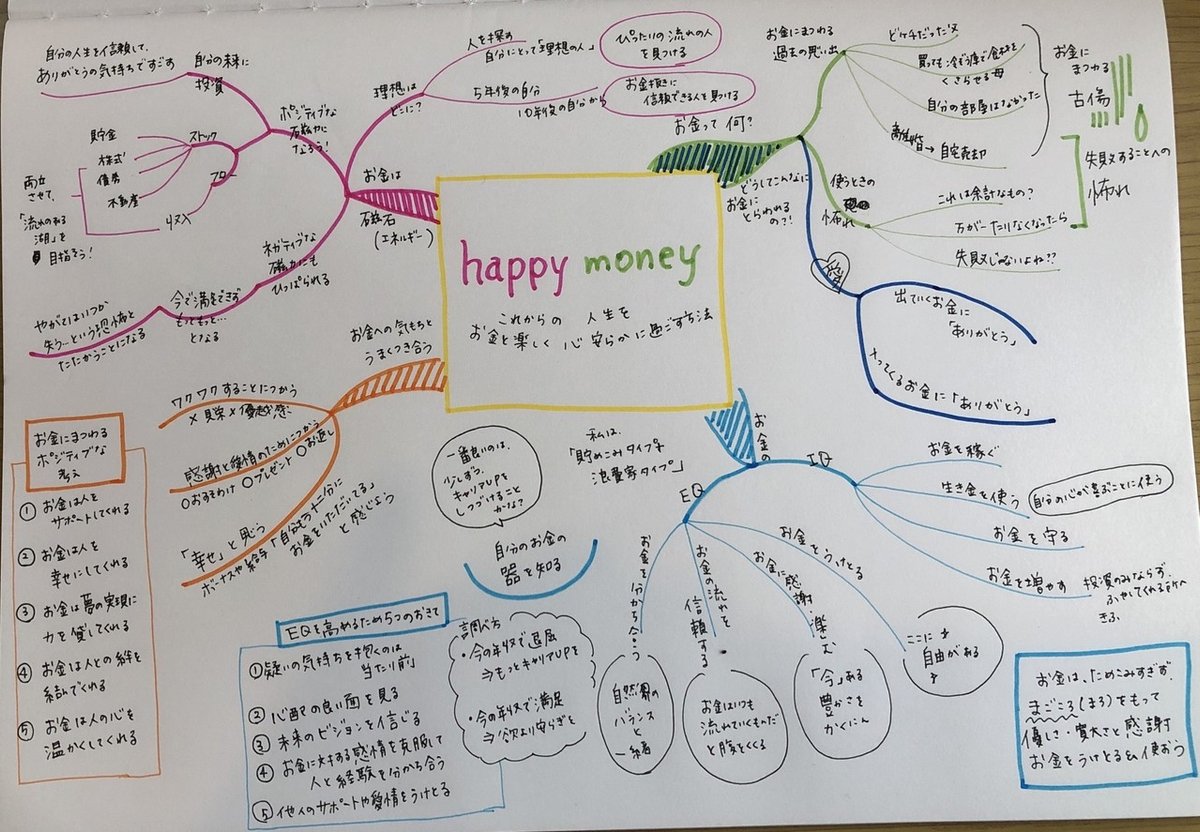 happy money
これからの 人生を
お金と楽しく 心安らかに過ごす方法
お金って何?
お金にまつわる
過去の思い出
どケチだった父
買っても冷ぞう庫で食材を
くさらせる母
自分の部屋はなかった
離婚→自宅売却
お金に
まつわる
古傷
使うときの
怖れ
これは余計なもの?
万が一たりなくなったら
失敗じゃないよね??
失敗することへの
怖れ
どうしてこんなに
お金に
とらわれる
の?!
出ていくお金に
「ありがとう」
入ってくるお金に「ありがとう」
お金の
IQ
お金を稼ぐ
生き金を使う
自分の心が喜ぶことに使う
お金を守る
お金を増やす
投資のみならず、
ふやしてくれる所へ
きふ
EQ
お金をうけとる
ここに
自由がある
お金に感謝・楽しむ
「今」ある
豊かさを
かくにん
お金の流れを
信頼する
お金はいつも
流れていくものだ
と腹をくくる
お金を分かち合う
自然界の
バランスと
一緒
私は、
「貯めこみタイプ+
浪費家タイプ」
一番良いのは、
少しずつ、
キャリアUPを
しつづけること
かな?
自分のお金の
器を知る
調べ方
・今の年収で退屈
⇒もっとキャリアUPを
・今の年収で満足
⇒欲より安らぎを
EQを高めるため5つのおきて
①疑いの気持ちを抱くのは
当たり前」
②心配での良い面を見る
③未来のビジョンを信じる
④お金に対する感情を克服して
人と経験を分かち合う
⑤他人のサポートや愛情をうけとる
お金は、ためこみすぎず、
まごころ(まろ)をもって
優しさ・寛大さと感謝
お金をうけとる&使おう
お金への気もちと
うまくつき合う
ワクワクすることにつかう
×見栄×優越感
感謝と愛情のためにつかう
○おすそわけ ○プレゼント ○お返し
「幸せ」と思う
ボーナスや給与「自分も十二分に
お金をいただいてる」
と感じよう
お金にまつわる
ポジティブな
考え
① お金は人を
サポートしてくれる
② お金は人を
幸せにしてくれる
③ お金は夢の実現に
力を貸してくれる
④ お金は人との絆を
結んでくれる
⑤ お金は人の心を
温かくしてくれる
お金は
磁石
(エネルギー)
理想は
どこに?
人を探す
自分にとって「理想の人」
ぴったりの流れの人
を見つける
5年後の自分
10年後の自分から
お金抜きに
信頼できる人を見つける
ポジティブな
磁力に
なろう!
自分の未来に
投資
自分の人生を信頼して、
ありがとうの気持ちですごす
ストック
貯金
株式
債券
不動産
フロー
収入
両立
させて、
「流れのある
湖」を
目指そう!
ネガティブな
磁力にも
ひっぱられる
今で満足できず
もっともっと…
となる
やがてはいつか
失う…という恐怖と
たたかうことになる